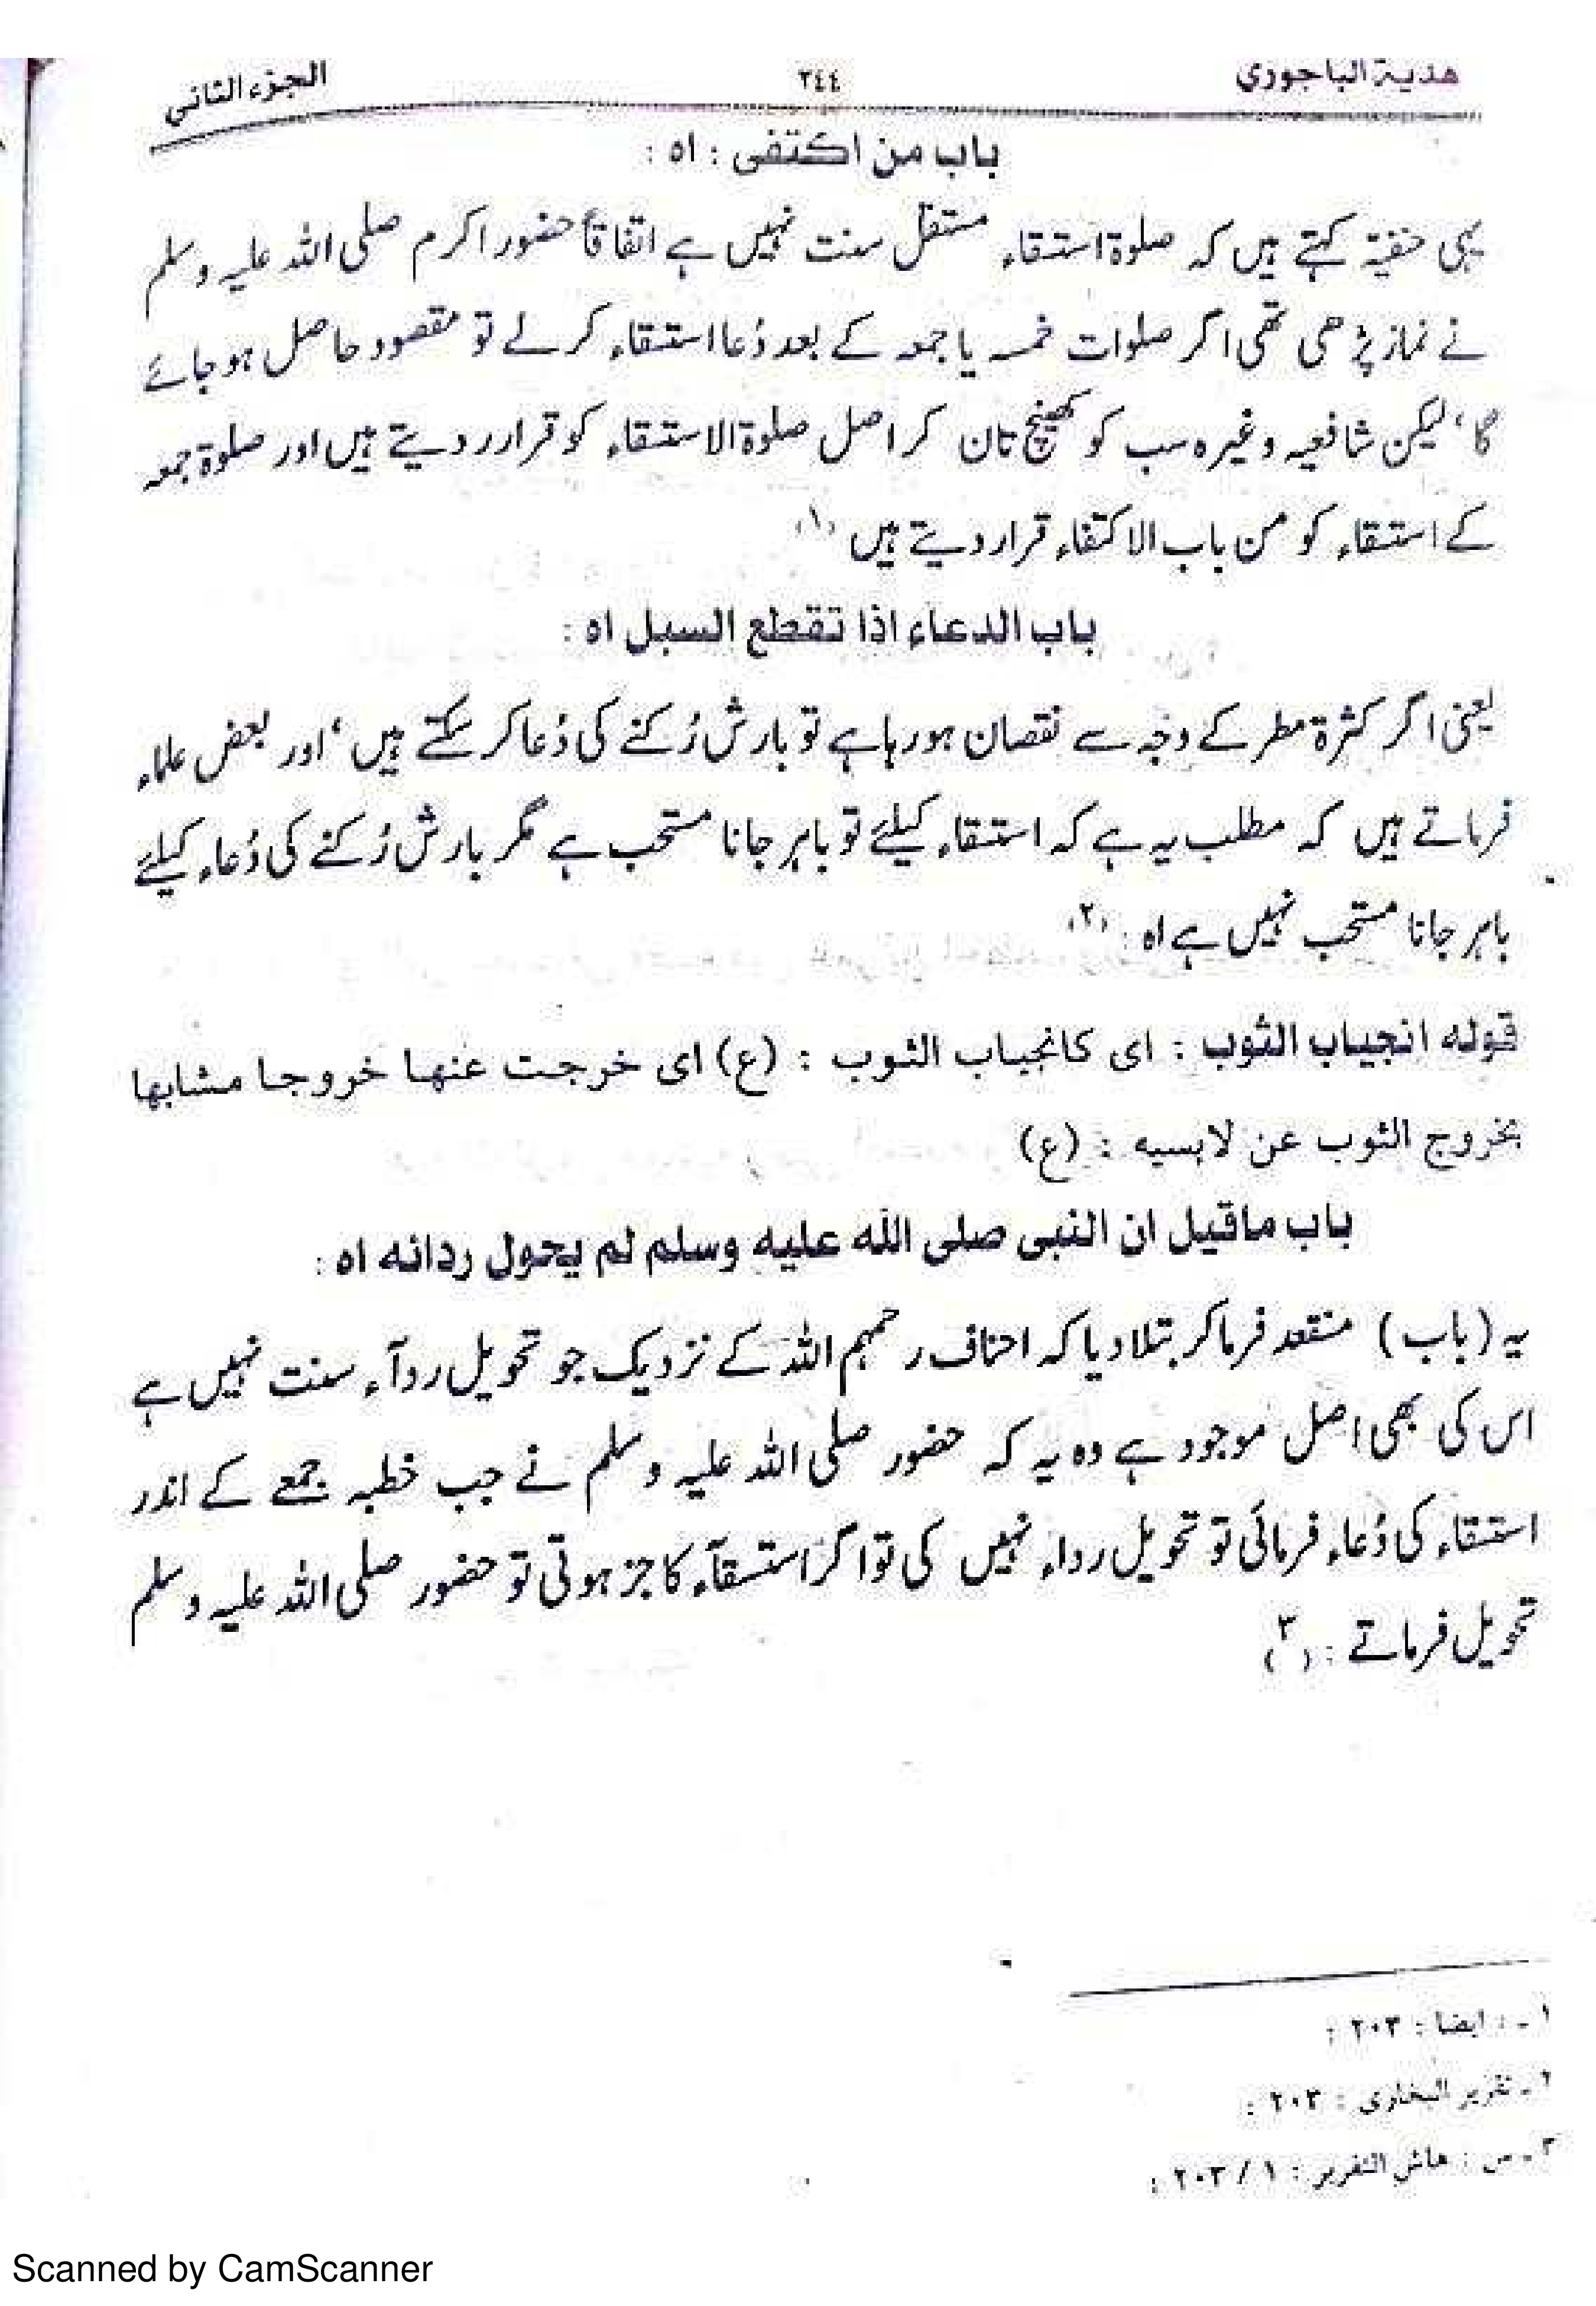 هدية الباجوري
٢٤٤
الجزء الثاني
باب من اکتفی : اہ :
یہی حنفیۃ کہتے ہیں کہ صلوۃ استسقاء مستقل سنت نہیں ہے اتفاقاً حضور اکرم صلی اللہ علیہ وسلم
نے نماز پڑھی تھی اگر صلوات خمسہ یا جمعہ کے بعد دُعا استسقاء کرلے تو مقصود حاصل ہو جائے
گا، لیکن شافعیہ وغیرہ سب کو کھینچ تان کر اصل صلوۃ الاستسقاء کو قرارر دیتے ہیں اور صلوۃ جمعہ
کے استسقاء کو من باب الاکتفاء قرار دیتے ہیں (١)
باب الدعاء اذا تقطع السبل اہ :
یعنی اگر کثرۃ مطر کے وجہ سے نقصان ہورہا ہے تو بارش رُکنے کی دُعا کر سکتے ہیں، اور بعض علماء
فرماتے ہیں کہ مطلب یہ ہے کہ استسقاء کیلئے تو باہر جانا مستحب ہے مگر بارش رُکنے کی دُعاء کیلئے
باہر جانا مستحب نہیں ہے اہ : (٢)
قوله انجياب الثوب : ای کانجياب الثوب : (ع) ای خرجت عنها خروجا مشابها
بخروج الثوب عن لابسيه : (ع)
باب ماقیل ان النبی صلی اللہ علیہ وسلم لم یحول ردائه اہ :
یہ (باب) منقعد فرما کر بتلا دیا کہ احناف رحمہم اللہ کے نزدیک جو تحویل ردآء سنت نہیں ہے
اس کی بھی اصل موجود ہے وہ یہ کہ حضور صلی اللہ علیہ وسلم نے جب خطبہ جمعے کے اندر
استسقاء کی دُعاء فرمائی تو تحویل رداء نہیں کی تو اگر استسقآء کا جز ہوتی تو حضور صلی اللہ علیہ وسلم
تحویل فرماتے : (٣)
١ـ : ايضا : ٢٠٣ :
٢ـ تقرير البخاری : ٢٠٣ :
٣ـ س : هاش التقرير : ١ / ٢٠٣ :
Scanned by CamScanner